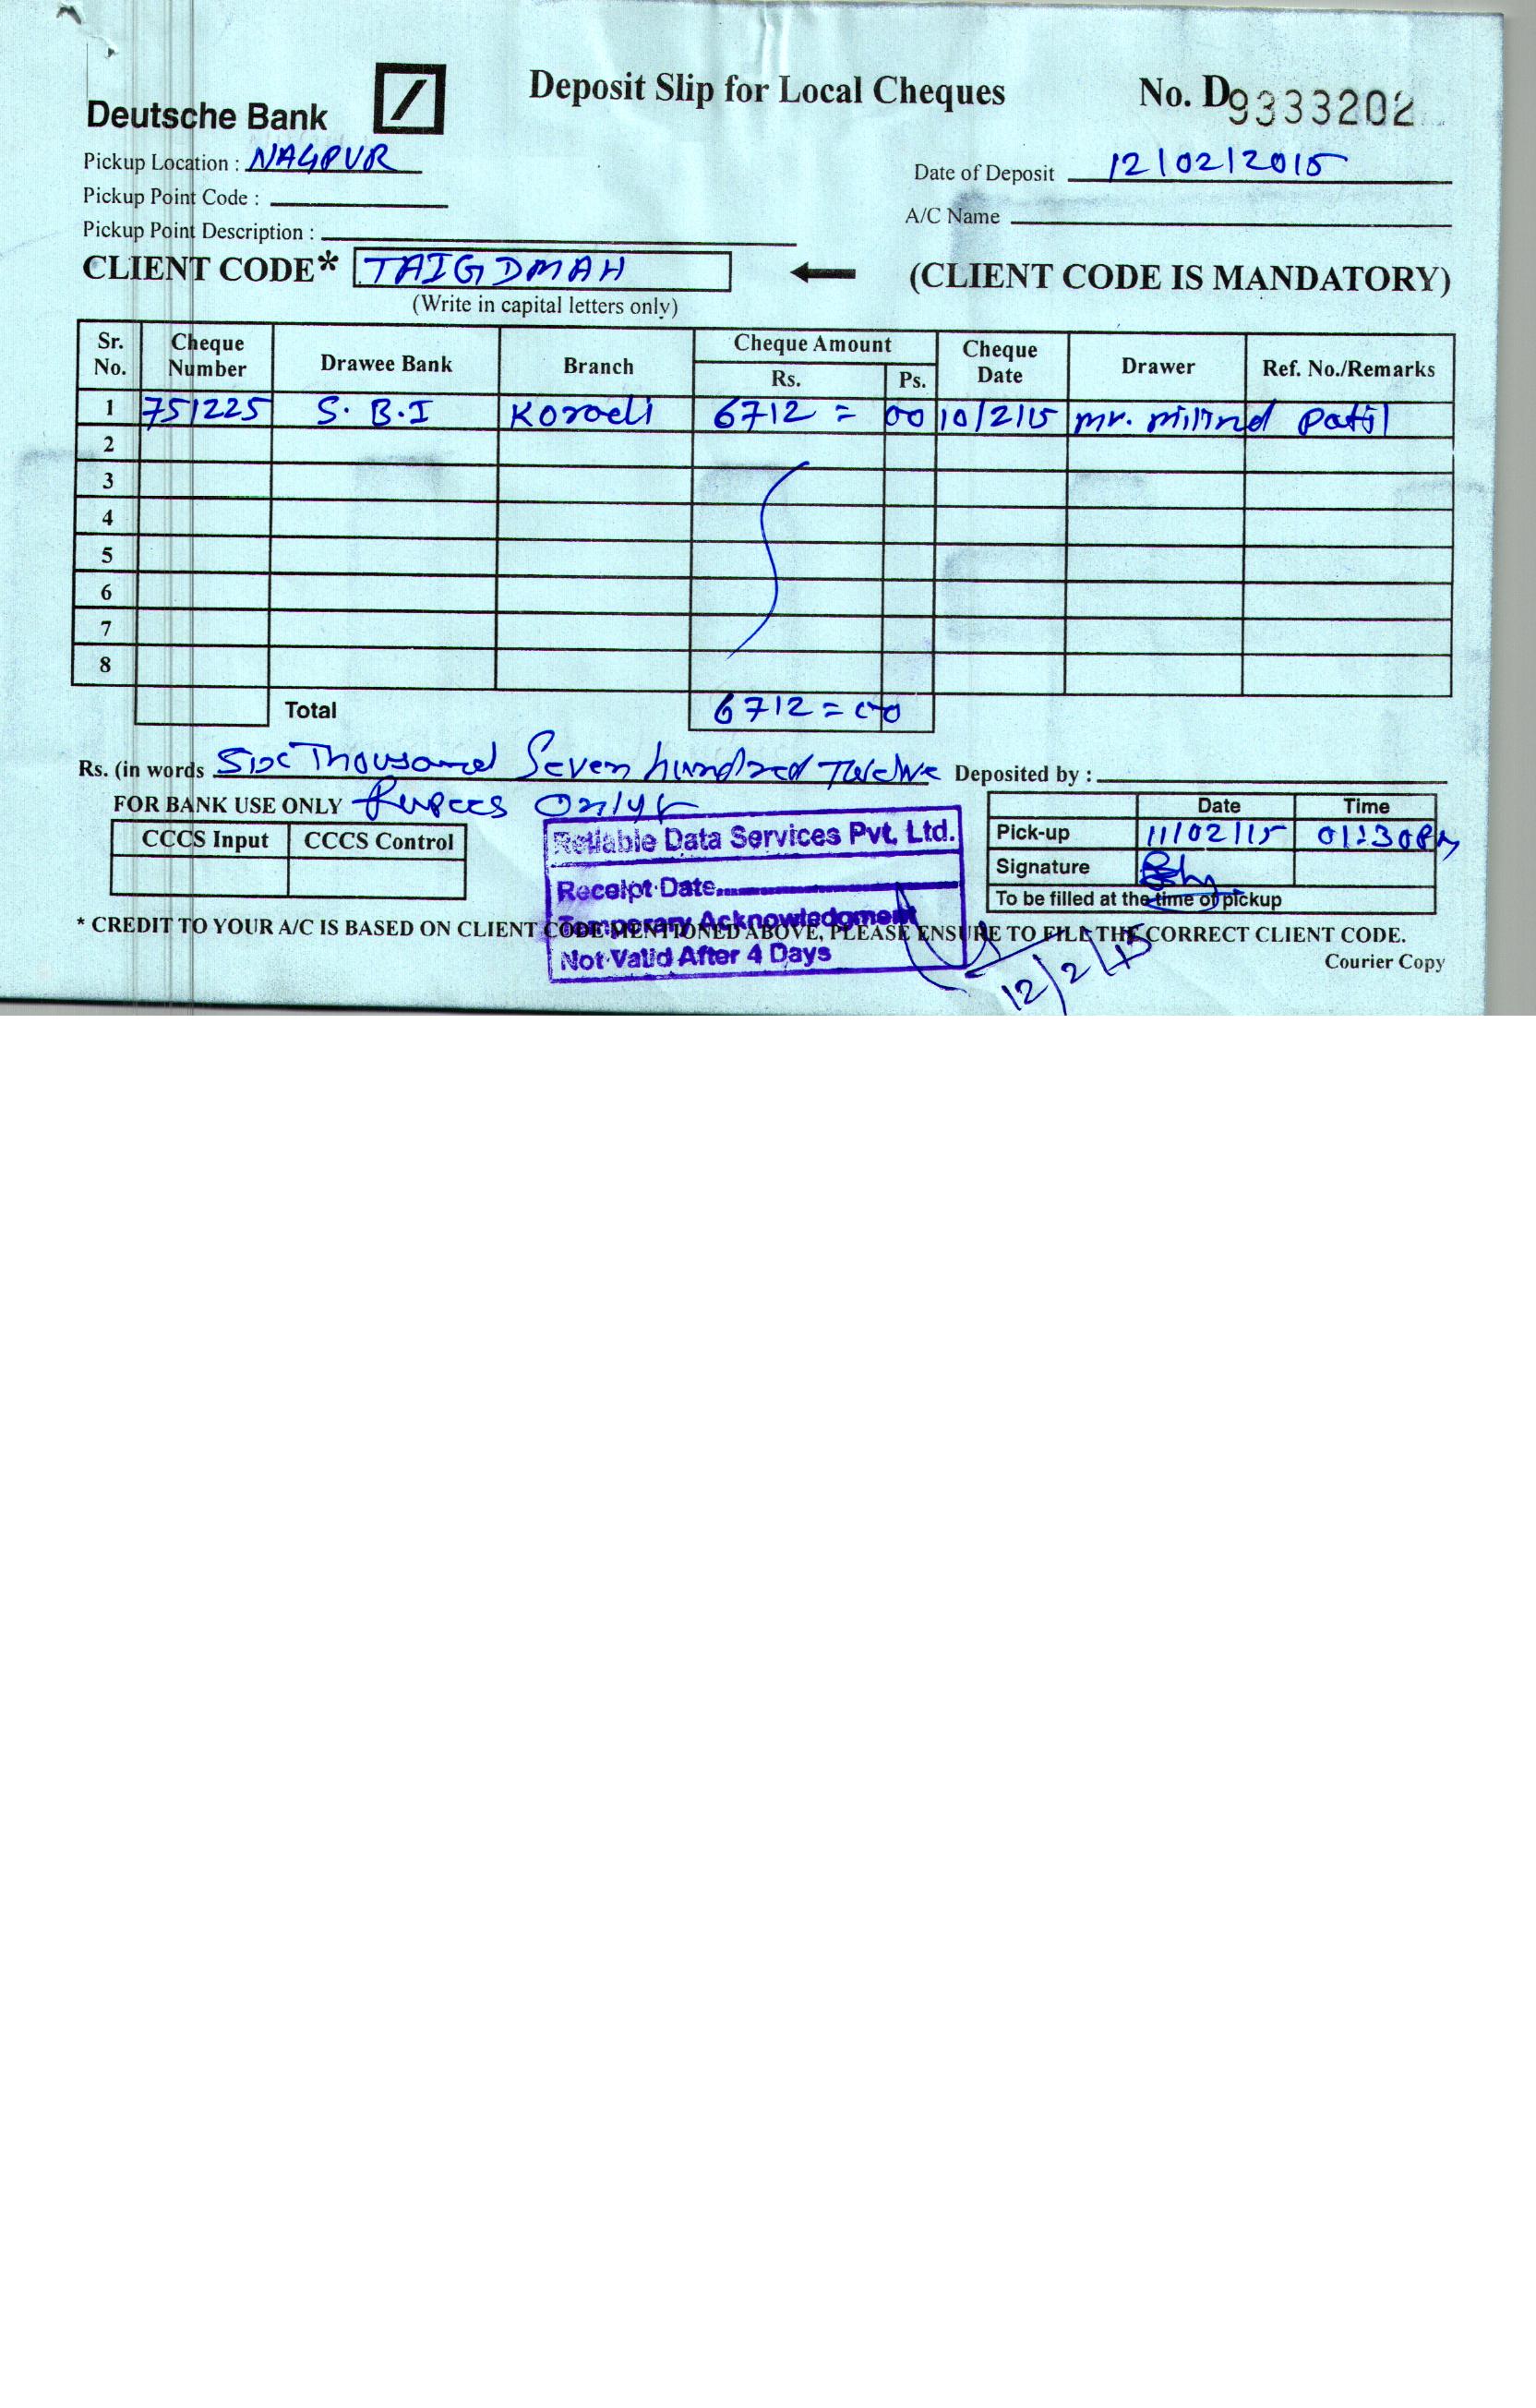 Deutsche Bank
Deposit Slip for Local Cheques
No. D9333202
Pickup Location : NAGPUR
Date of Deposit 12/02/2015
Pickup Point Code :
A/C Name
Pickup Point Description :
CLIENT CODE* TAIGDMAH
(CLIENT CODE IS MANDATORY)
(Write in capital letters only)
Sr. No. Cheque Number Drawee Bank Branch Cheque Amount Rs. Ps. Cheque Date Drawer Ref. No./Remarks
1 751225 S.B.I Koradi 6712 = 00 10/2/15 mr. milind patil
2
3
4
5
6
7
8
Total 6712 = 00
Rs. (in words Six Thousand Seven hundred Twelve Deposited by :
FOR BANK USE ONLY Rupees Only
CCCS Input CCCS Control
Reliable Data Services Pvt. Ltd.
Receipt Date
Temporary Acknowledgment
Not Valid After 4 Days
Date Time
Pick-up 11/02/15 01:30PM
Signature
To be filled at the time of pickup
* CREDIT TO YOUR A/C IS BASED ON CLIENT CODE MENTIONED ABOVE, PLEASE ENSURE TO FILL THE CORRECT CLIENT CODE.
12/2/15
Courier Copy